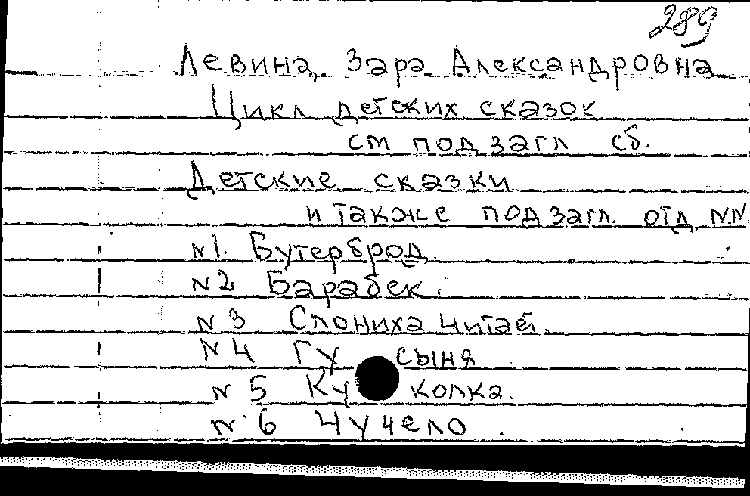 289
Левина, Зара Александровна
Цикл детских сказок
см под загл сб.
Детские сказки
и также под загл. отд NN
N1. Бутерброд
N2 Барабек.
N3 Слониха читает.
N4 Гу сыня
N5 Ку колка.
N6 Чучело.